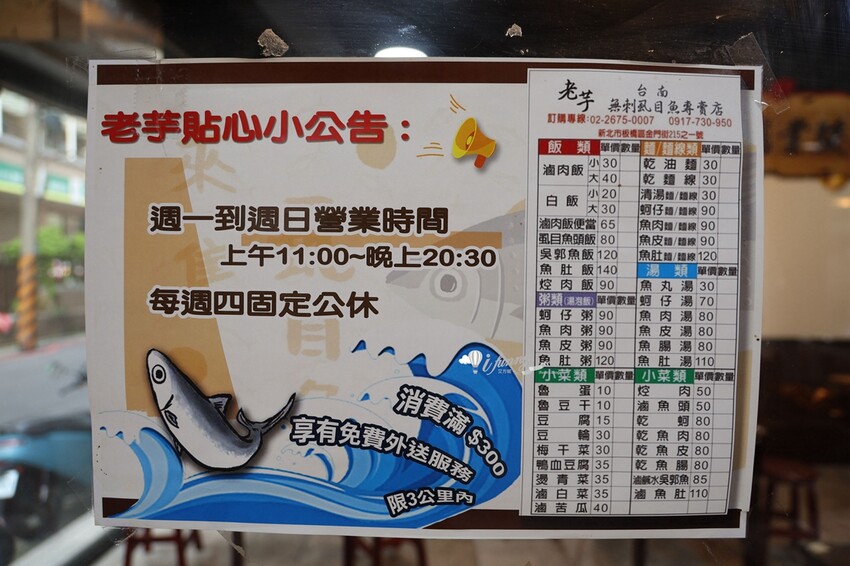 老芋貼心小公告：
週一到週日營業時間
上午11:00~晚上20:30
每週四固定公休
消費滿 $300
享有免費外送服務
限3公里內
i funny
老芋 台南
無刺虱目魚專賣店
訂購專線:02-2675-0007 0917-730-950
新北市板橋區金門街215之一號
飯類 單價 數量
滷肉飯 小 30
大 40
白飯 小 20
大 30
滷肉飯便當 65
虱目魚頭飯 80
吳郭魚飯 120
魚肚飯 140
焢肉飯 90
粥類(湯泡飯) 單價 數量
蚵仔粥 90
魚肉粥 90
魚皮粥 90
魚肚粥 120
小菜類 單價 數量
魯蛋 10
魯豆干 10
豆腐 15
豆輪 30
梅干菜 30
鴨血豆腐 35
燙青菜 35
滷白菜 35
滷苦瓜 40
麵/麵線類 單價 數量
乾油麵 30
乾麵線 30
清湯麵/麵線 30
蚵仔麵/麵線 90
魚肉麵/麵線 90
魚皮麵/麵線 90
魚肚麵/麵線 120
湯類 單價 數量
魚丸湯 30
蚵仔湯 70
魚肉湯 80
魚皮湯 80
魚腸湯 80
魚肚湯 110
小菜類 單價 數量
焢肉 50
滷魚頭 50
乾蚵 80
乾魚肉 80
乾魚皮 80
乾魚腸 80
滷鹹水吳郭魚 85
滷魚肚 110